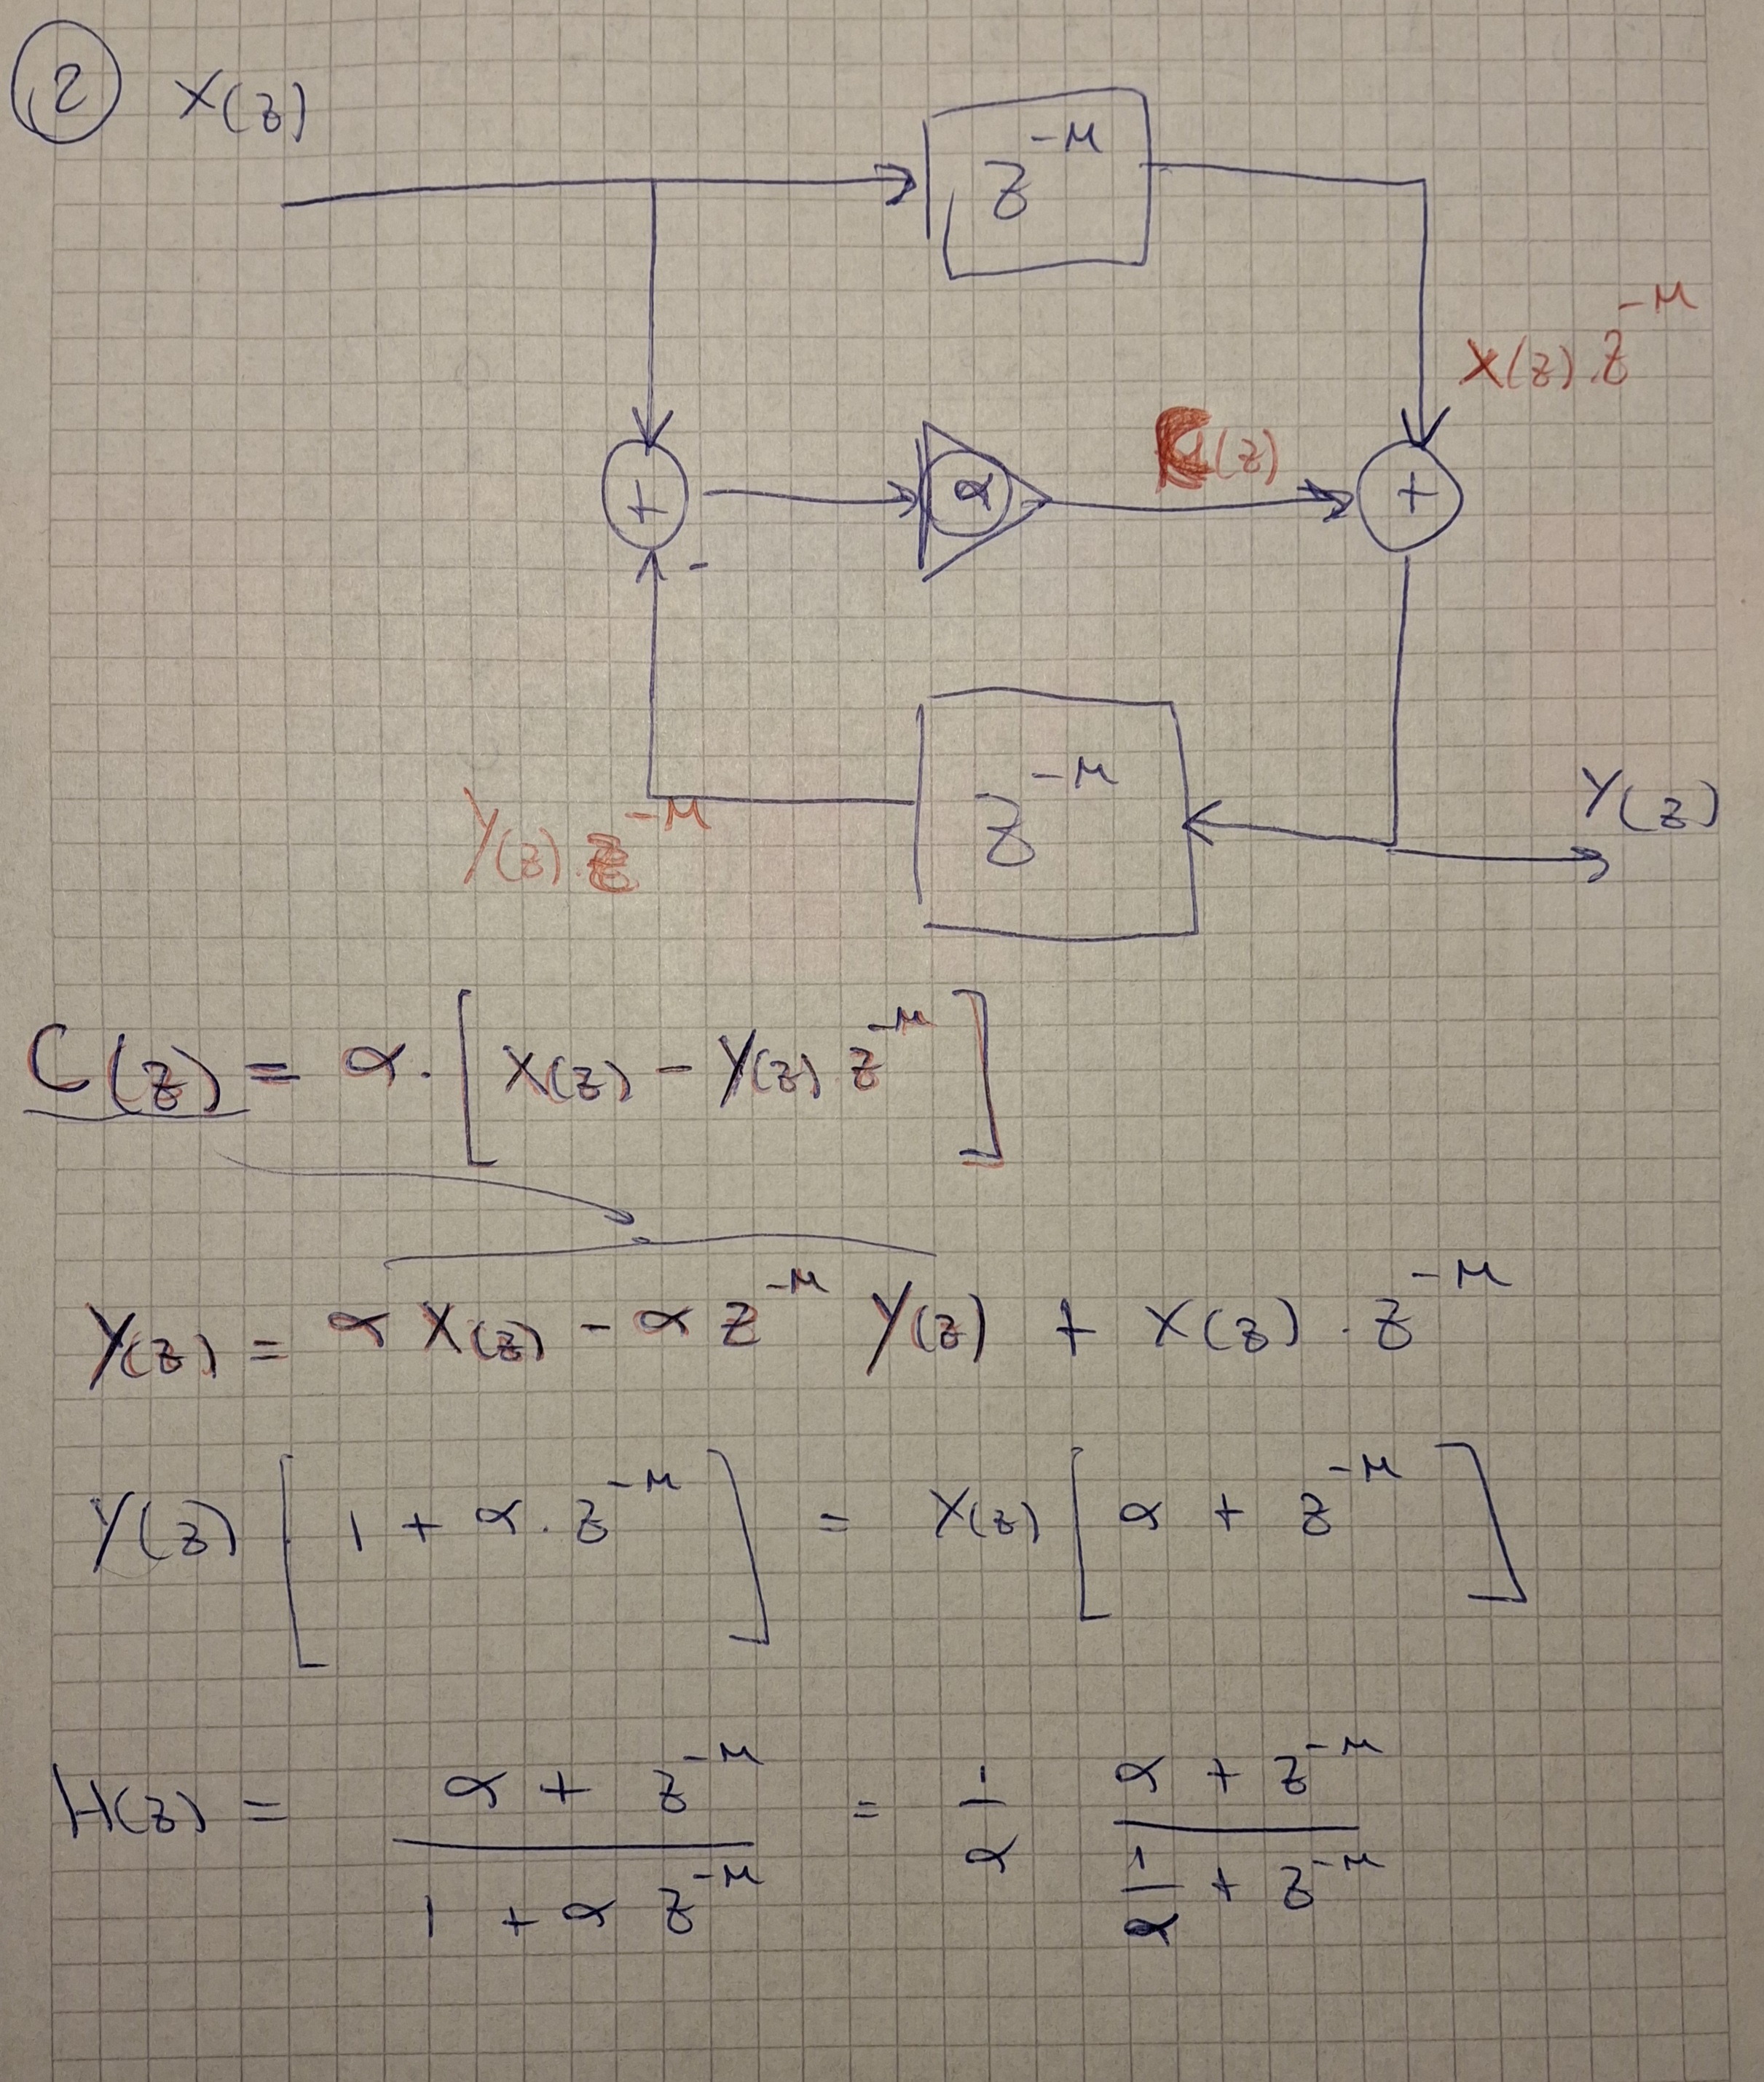 2 X(z)
z^{-M}
X(z).z^{-M}
C(z)
+ α +
-
z^{-M}
Y(z)
Y(z).z^{-M}
C(z) = α. [ X(z) - Y(z) z^{-M} ]
Y(z) = α X(z) - α z^{-M} Y(z) + X(z) . z^{-M}
Y(z) [ 1 + α. z^{-M} ] = X(z) [ α + z^{-M} ]
H(z) = \frac{α + z^{-M}}{1 + α z^{-M}} = \frac{1}{α} \frac{α + z^{-M}}{\frac{1}{α} + z^{-M}}